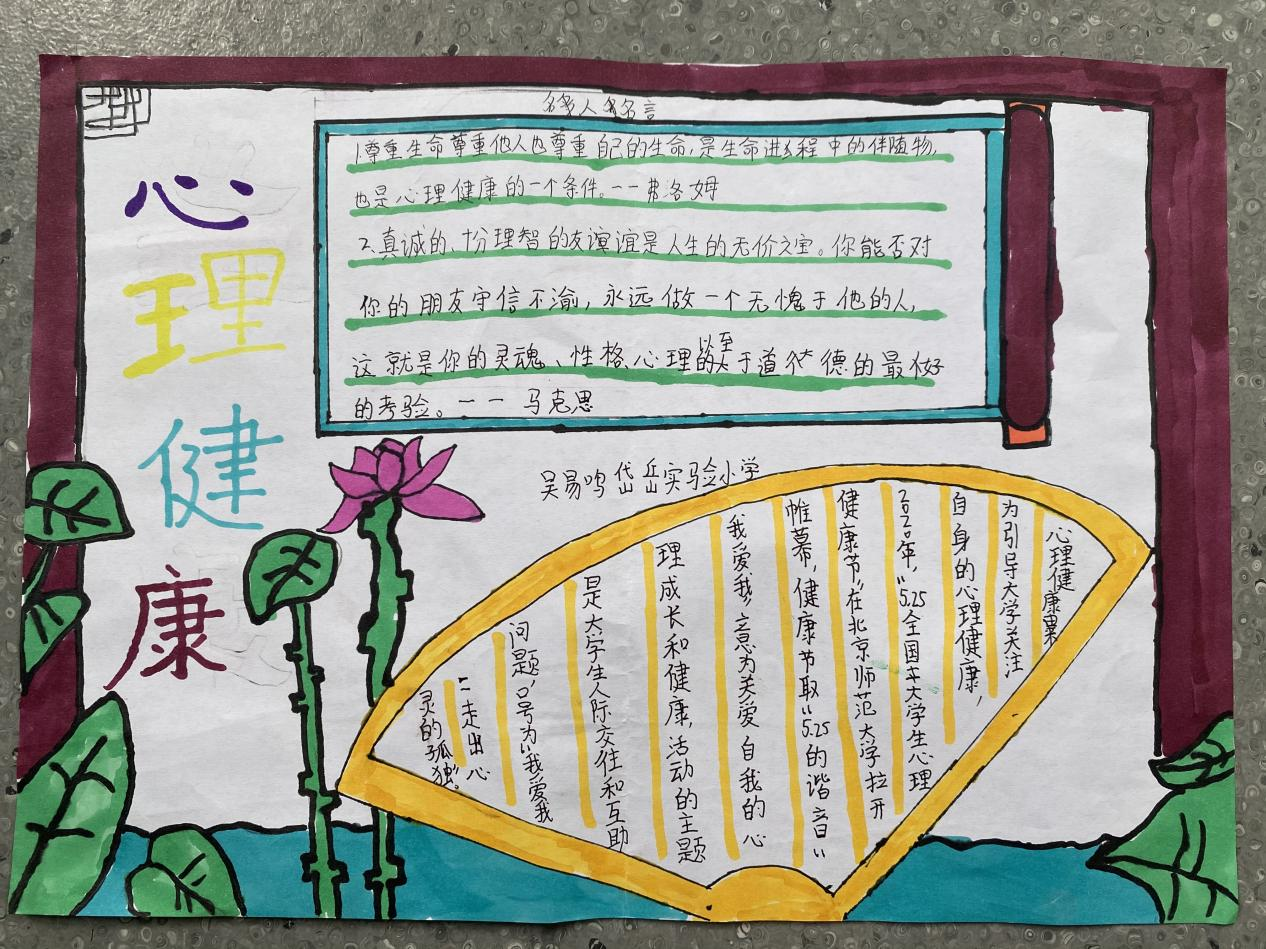 心
理
健
康
名人名言
1.尊重生命尊重他人也尊重自己的生命,是生命进程中的伴随物,
也是心理健康的一个条件。--弗洛姆
2.真诚的、十分理智的友谊是人生的无价之宝。你能否对
你的朋友守信不渝,永远做一个无愧于他的人,
这就是你的灵魂、性格、心理以至于道德的最好
的考验。-- 马克思
吴易鸣岱岳实验小学
心理健康
为引导大学关注
自身的心理健康,
2020年,“5.25全国大学生心理
健康节”在北京师范大学拉开
帷幕,健康节取“5.25的谐音“
我爱我,意为关爱自我的心
理成长和健康,活动的主题
是大学生人际交往和互助
问题,口号为“我爱我
“走出心
灵的孤独”.